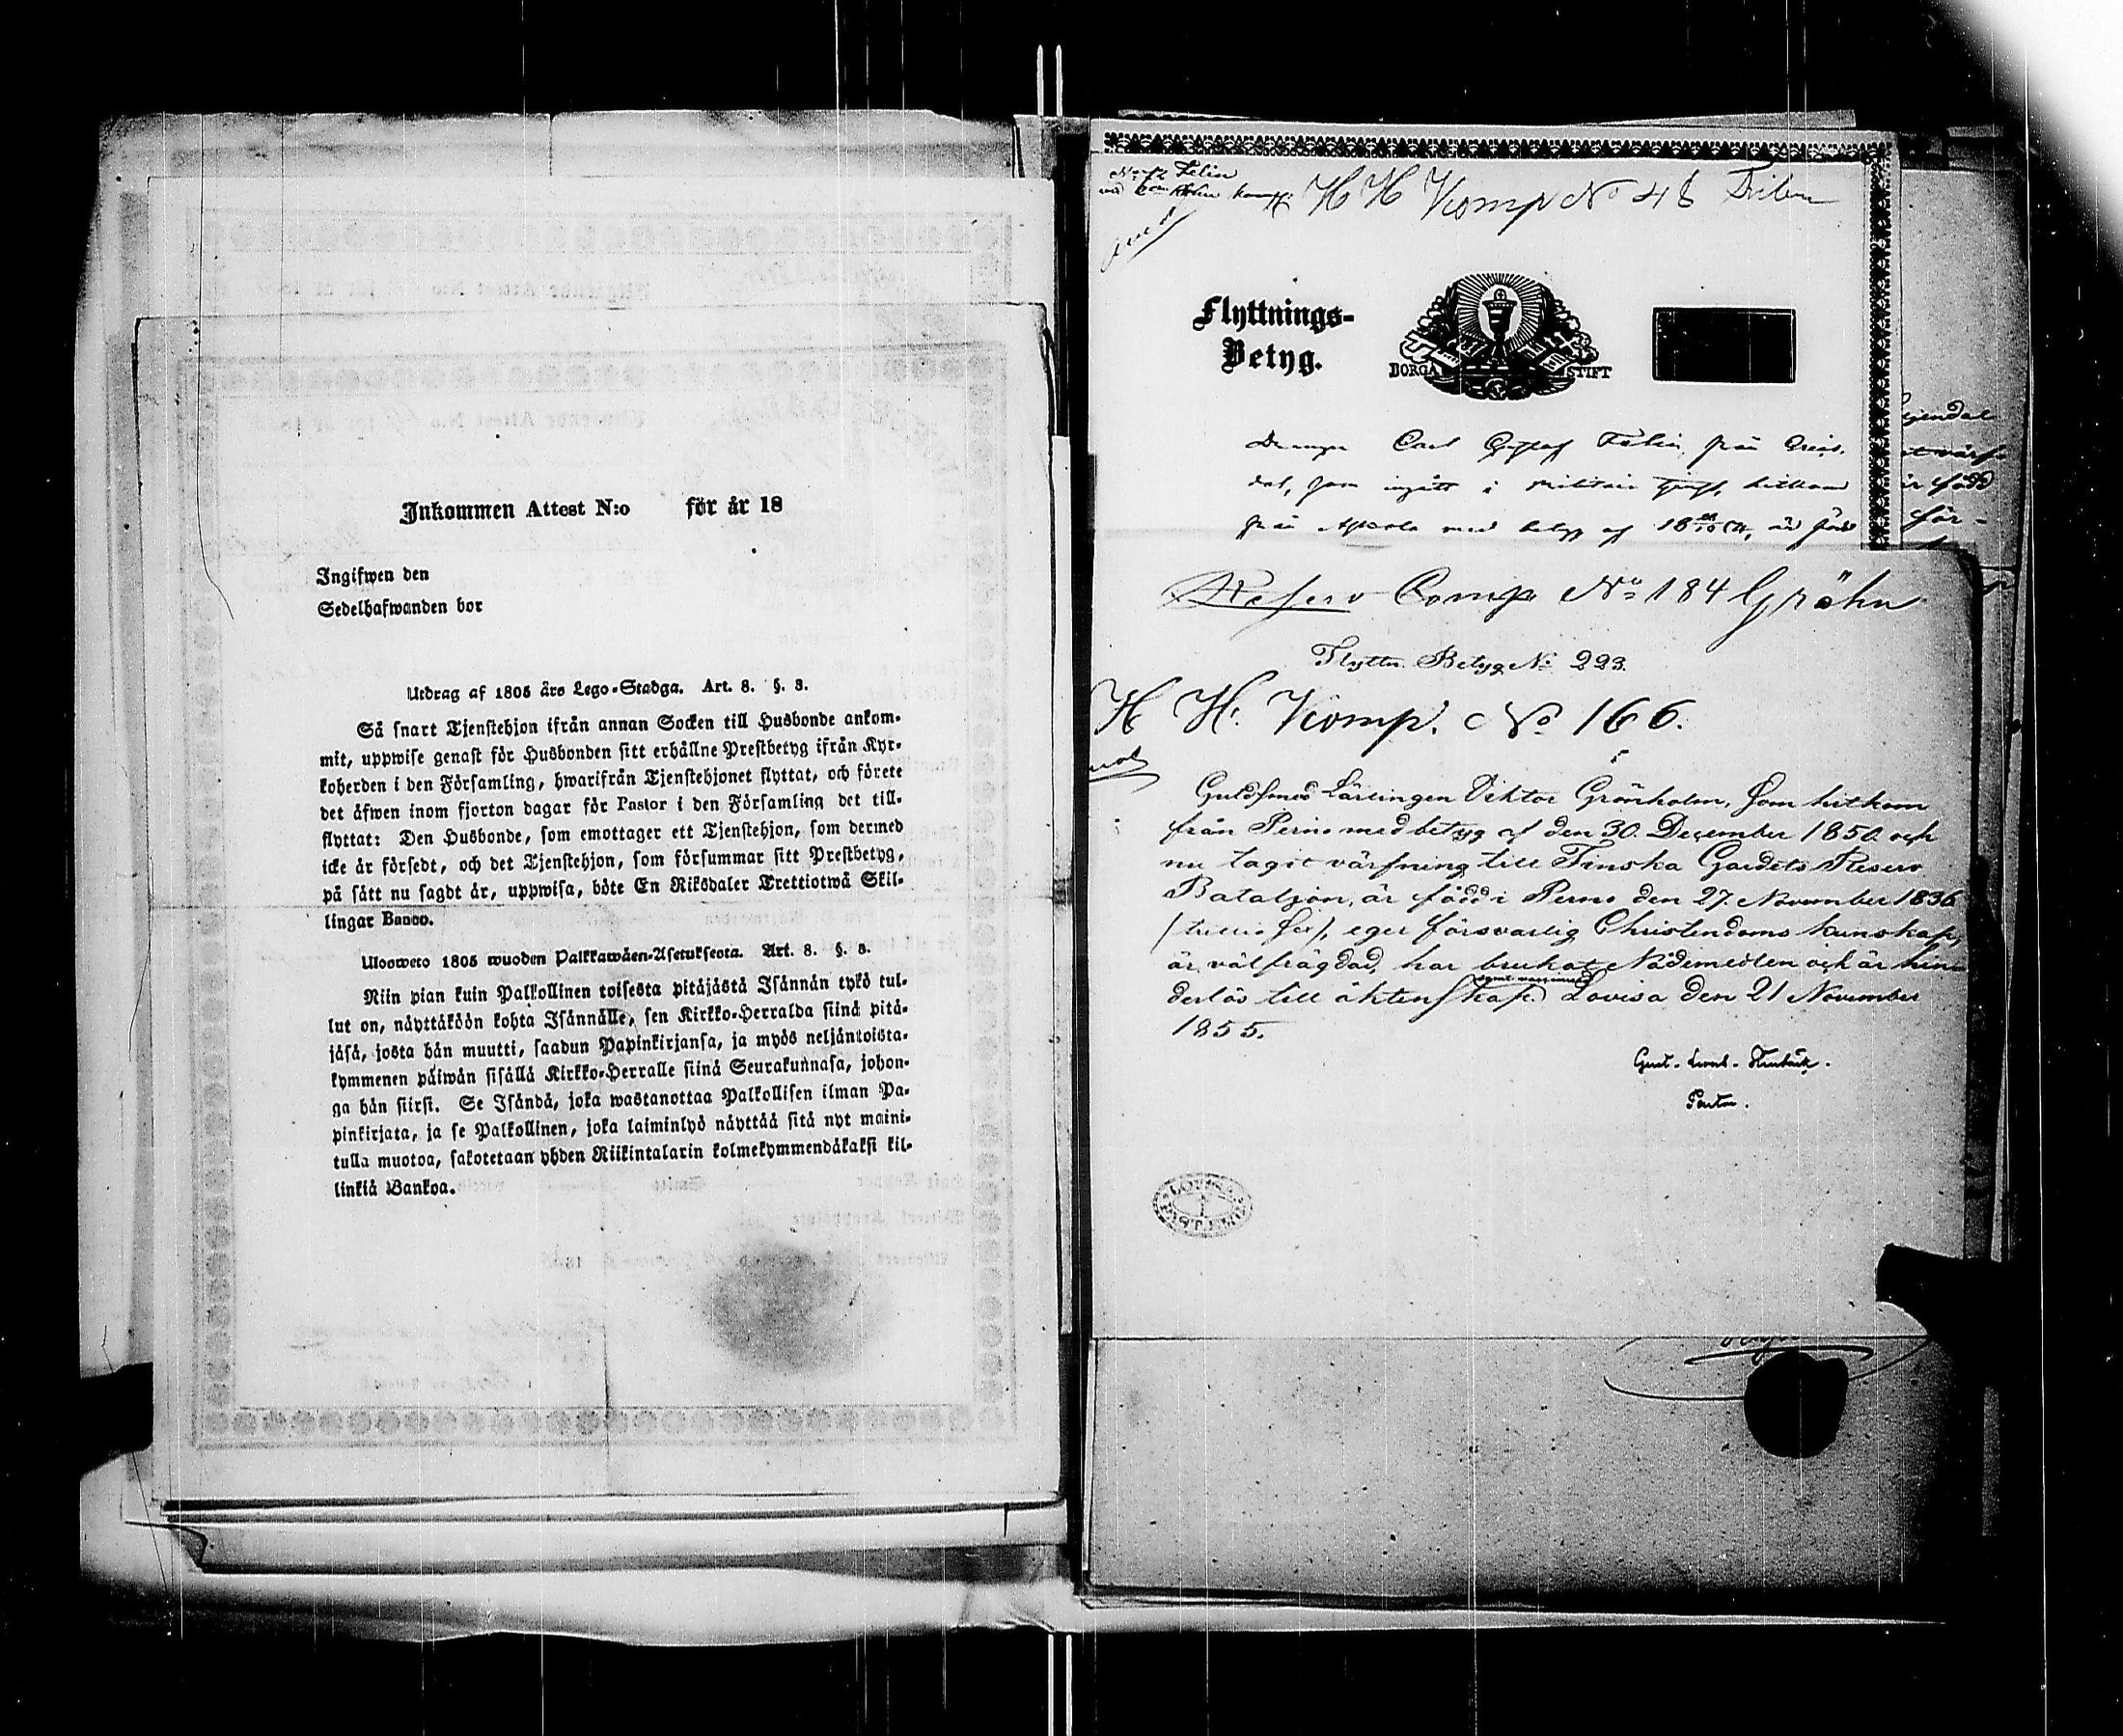 Inkommen Attest N:o för år 18
Ingifwen den
Sedelhafwanden bor
Utdrag af 1805 års Lego-Stadga. Art. 8. §. 3.
Så snart Tjenstehjon ifrån annan Socken till Husbonde ankom-
mit, uppwise genast för Husbonden sitt erhållne Prestbetyg ifrån Kyr-
koherden i den Församling, hwarifrån Tjenstehjonet flyttat, och förete
det äfwen inom fjorton dagar för Pastor i den Församling det till-
flyttat: Den Husbonde, som emottager ett Tjenstehjon, som dermed
icke är försedt, och det Tjenstehjon, som försummar sitt Prestbetyg,
på sätt nu sagdt är, uppwisa, böte En Riksdaler Trettiotwå Skil-
lingar Banco.
Ulosweto 1805 wuoden Palkkawäen-Asetuksesta. Art. 8. §. 3.
Niin pian kuin Palkollinen toisesta pitäjästä Isännän tykö tul-
lut on, näyttäköön kohta Isännälle, sen Kirkko-Herralda siinä pitä-
jäsä, josta hän muutti, saadun Papinkirjansa, ja myös neljäntoista-
kymmenen päiwän sisällä Kirkko-Herralle siinä Seurakunnasa, johon-
ga hän siirsi. Se Isändä, joka wastanottaa Palkollisen ilman Pa-
pinkirjata, ja se Palkollinen, joka laiminlyö näyttää sitä nyt maini-
tulla muotoa, sakotetaan yhden Riikintalarin kolmekymmendäkaksi kil-
linkiä Bankoa.
H H Komp No 48
Flyttnings-
Betyg.
BORGÅ STIFT
Drengen Carl Gustaf Felin, från
dal, som ingått i Militair hitkom
från med betyg af är född
Reserv Comp No 184 Gröhn
Flyttn. Betyg No 223.
H H. Komp. No 166.
Guldsmeds Lärlingen Viktor Grönholm, som hitkom
från Perno med betyg af den 30. December 1850 och
nu tagit värfning till Finska Gardets Reserv
Bataljon, är född i Perno den 27. November 1836
/trettio sex/, eger försvarlig Christendoms kunskap,
är välfrägdad, har brukat Nådemedlen och är hin-
derlös till äktenskap. Lovisa den 21 November
1855.
Pastor.
LOVISA